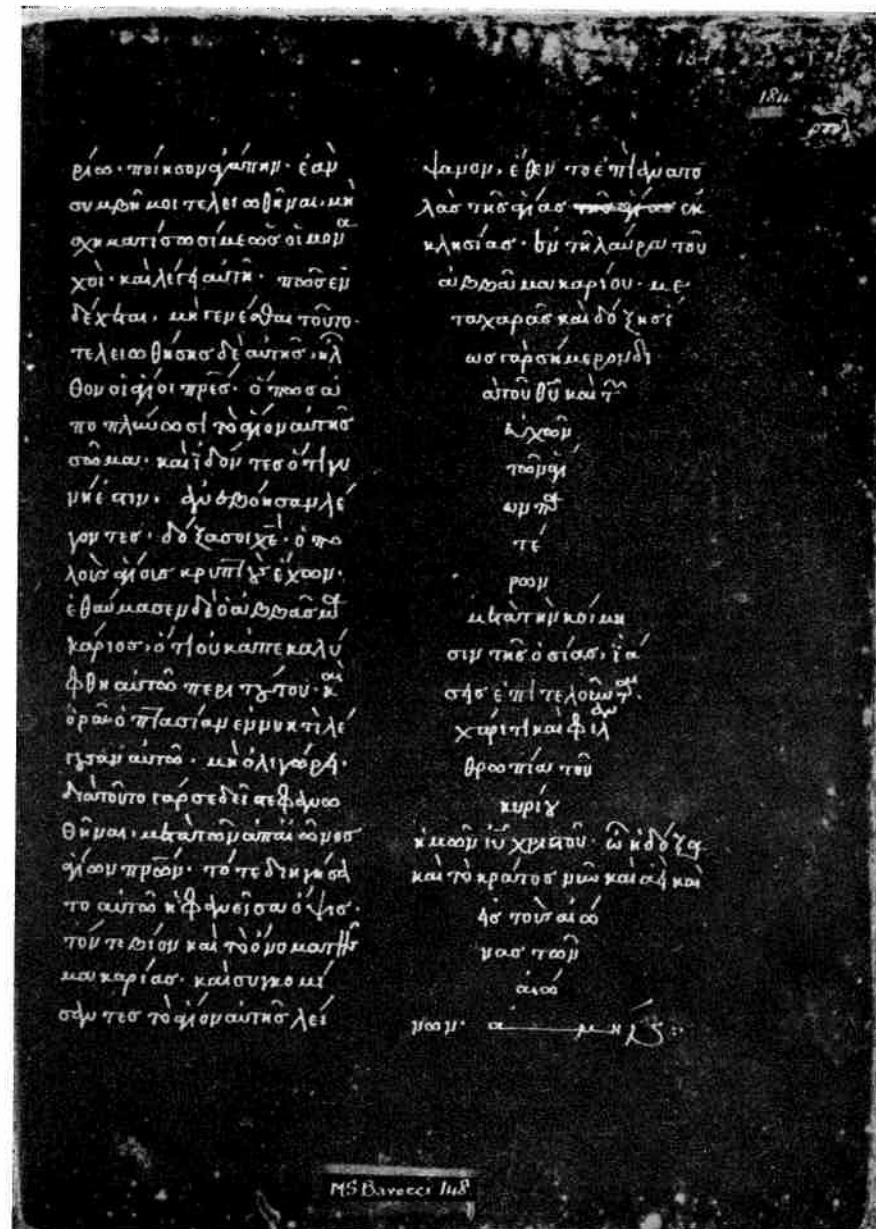 184
ρίω· ποίησον ἀγάπην· ἐὰν
συμβῆ μοι τελειωθῆναι, μὴ
μον
χοὶ· καὶ λέγει αὐτῆ·
δέχεται, μὴ γενέσθαι τοῦτο·
τελειωθήσης δὲ αὐτῆς, ἦλ
θον οἱ ἅγιοι πρ̅ε̅σ· ὅπως ἀ
πο πλύνωσι τὸ ἅγιον αὐτῆς
σῶμα· καὶ ἰδόντες ὅτι γυ
νή ἐστιν, ἀνεβόησαν λέ
γοντες· δόξα σοι χ̅ε̅· ὁ πο
λοὺς ἁγίους κρυπτοὺς ἔχων·
ἐθαύμασεν δὲ ὁ ἀββᾶς μα
κάριος, ὅτι οὐκ ἀπεκαλύ
φθη αὐτῶ περι τούτου· καὶ
ὁρᾶ ὀπτασίαν ἐν νυκτὶ λέ
γουσαν αὐτῶ· μὴ ὀλιγώρει·
διατοῦτο γάρ σε δεῖ στεφανω
θῆναι, μετα τῶν ἀπ αἰῶνος
ἁγίων πρ̅ω̅ν· τότε διηγήσα
το αὐτῶ ἡ φανεῖσα ὄψις·
τόν τε βίον καὶ τὸ ὄνομα τῆς
μακαρίας· καὶ συγκομί
σαντες τὸ ἅγιον αὐτῆς λεί
ψανον, ἔθεντο ἐπὶ
λὰς τῆς ἁγίας τῆς ἁγίας ἐκ
κλησίας· ἐν τῆ λαύρα τοῦ
ἀββᾶ μακαρίου· με
τα χαρᾶς καὶ δόξης ἕ
ως γὰρ σήμερον, δι
αὐτοῦ θ̅υ̅ καὶ τῶν
εὐχῶν
τῶν ἁγί
ων πα
τέ
ρων
μετὰ τὴν κοίμη
σιν τῆς ὁσίας, ἰά
σεις ἐπιτελοῦνται·
χάριτι καὶ φιλαν
θρωπία τοῦ
κυρίου
ἡμῶν ἰ̅υ̅ χριστοῦ· ὧ ἡ δόξα
καὶ τὸ κράτος νῦν καὶ ἀεὶ καὶ
εἰς τοὺς αἰῶ
νας τῶν
αἰώ
νων· ἀμήν:·
MS Barocci 148